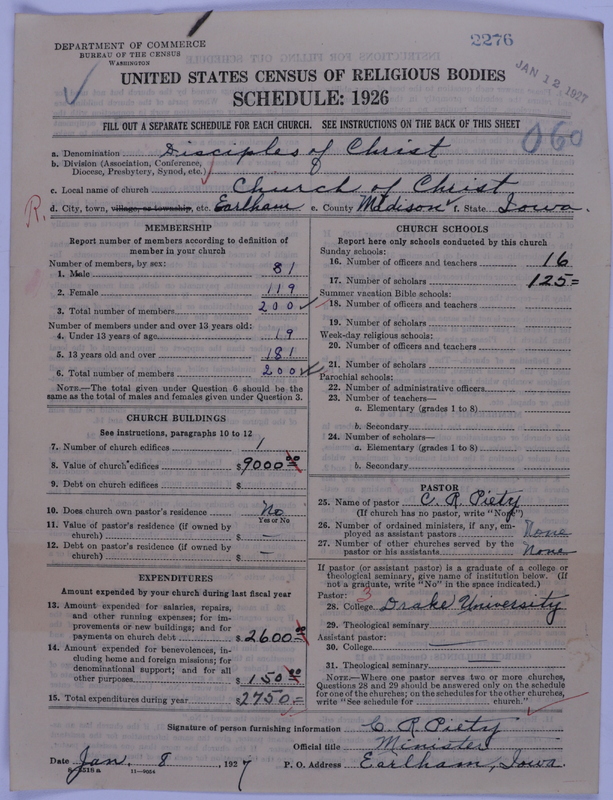 2276
JAN 12 1927
DEPARTMENT OF COMMERCE
BUREAU OF THE CENSUS
WASHINGTON
UNITED STATES CENSUS OF RELIGIOUS BODIES
SCHEDULE: 1926
FILL OUT A SEPARATE SCHEDULE FOR EACH CHURCH. SEE INSTRUCTIONS ON THE BACK OF THIS SHEET
060
a. Denomination Disciples of Christ
b. Division (Association, Conference,
Diocese, Presbytery, Synod, etc.)
c. Local name of church Church of Christ
R. d. City, town, village, or township, etc. Earlham e. County Madison f. State Iowa.
MEMBERSHIP
Report number of members according to definition of
member in your church
Number of members, by sex:
1. Male 81
2. Female 119
3. Total number of members 200
Number of members under and over 13 years old:
4. Under 13 years of age 19
5. 13 years old and over 181
6. Total number of members 200
NOTE.—The total given under Question 6 should be the
same as the total of males and females given under Question 3.
CHURCH BUILDINGS
See instructions, paragraphs 10 to 12
7. Number of church edifices 1
8. Value of church edifices $9000 00
9. Debt on church edifices $
10. Does church own pastor's residence No
Yes or No
11. Value of pastor's residence (if owned by
church) $ —
12. Debt on pastor's residence (if owned by
church) $ —
EXPENDITURES
Amount expended by your church during last fiscal year
13. Amount expended for salaries, repairs,
and other running expenses; for im-
provements or new buildings; and for
payments on church debt $2600 00
14. Amount expended for benevolences, in-
cluding home and foreign missions; for
denominational support; and for all
other purposes $150 00
15. Total expenditures during year $2750.=
CHURCH SCHOOLS
Report here only schools conducted by this church
Sunday schools:
16. Number of officers and teachers 16
17. Number of scholars 125=
Summer vacation Bible schools:
18. Number of officers and teachers
19. Number of scholars
Week-day religious schools:
20. Number of officers and teachers
21. Number of scholars
Parochial schools:
22. Number of administrative officers
23. Number of teachers—
a. Elementary (grades 1 to 8)
b. Secondary
24. Number of scholars—
a. Elementary (grades 1 to 8)
b. Secondary
PASTOR
25. Name of pastor C. R. Piety
(If church has no pastor, write "None")
26. Number of ordained ministers, if any, em-
ployed as assistant pastors None
27. Number of other churches served by the
pastor or his assistants None
If pastor (or assistant pastor) is a graduate of a college or
theological seminary, give name of institution below. (If
not a graduate, write "No" in the space indicated.)
Pastor: 3
28. College Drake University
29. Theological seminary
Assistant pastor:
30. College
31. Theological seminary
NOTE.—Where one pastor serves two or more churches,
Questions 28 and 29 should be answered only on the schedule
for one of the churches; on the schedules for the other churches,
write "See schedule for church."
Signature of person furnishing information C. R. Piety
Official title Minister
Date Jan. 8, 1927 P. O. Address Earlham, Iowa.
11—9034